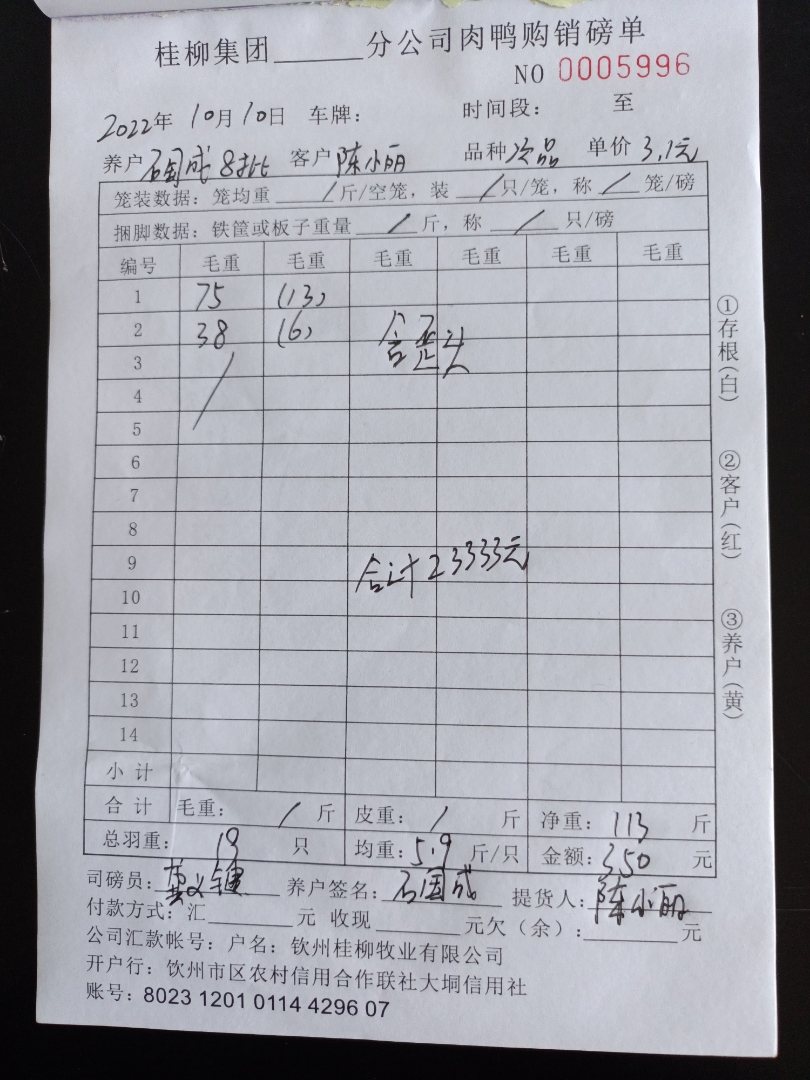 桂柳集团______分公司肉鸭购销磅单
NO 0005996
2022年 10月10日 车牌: 时间段: 至
养户 石国成 8批 客户 陈小丽 品种 次品 单价 3.1元
笼装数据: 笼均重 / 斤/空笼, 装 / 只/笼, 称 / 笼/磅
捆脚数据: 铁筐或板子重量 / 斤, 称 / 只/磅
编号 毛重 毛重 毛重 毛重 毛重 毛重
1 75 (13)
2 38 (6) 含歪头
3 /
4
5
6
7
8
9 合计 23333元
10
11
12
13
14
小计
合计 毛重: / 斤 皮重: / 斤 净重: 113 斤
总羽重: 19 只 均重: 5.9 斤/只 金额: 350 元
司磅员: 养户签名: 石国成 提货人: 陈小丽
付款方式: 汇______元 收现______元欠(余):______元
公司汇款帐号: 户名: 钦州桂柳牧业有限公司
开户行: 钦州市区农村信用合作联社大垌信用社
账号: 8023 1201 0114 4296 07
①存根(白)
②客户(红)
③养户(黄)